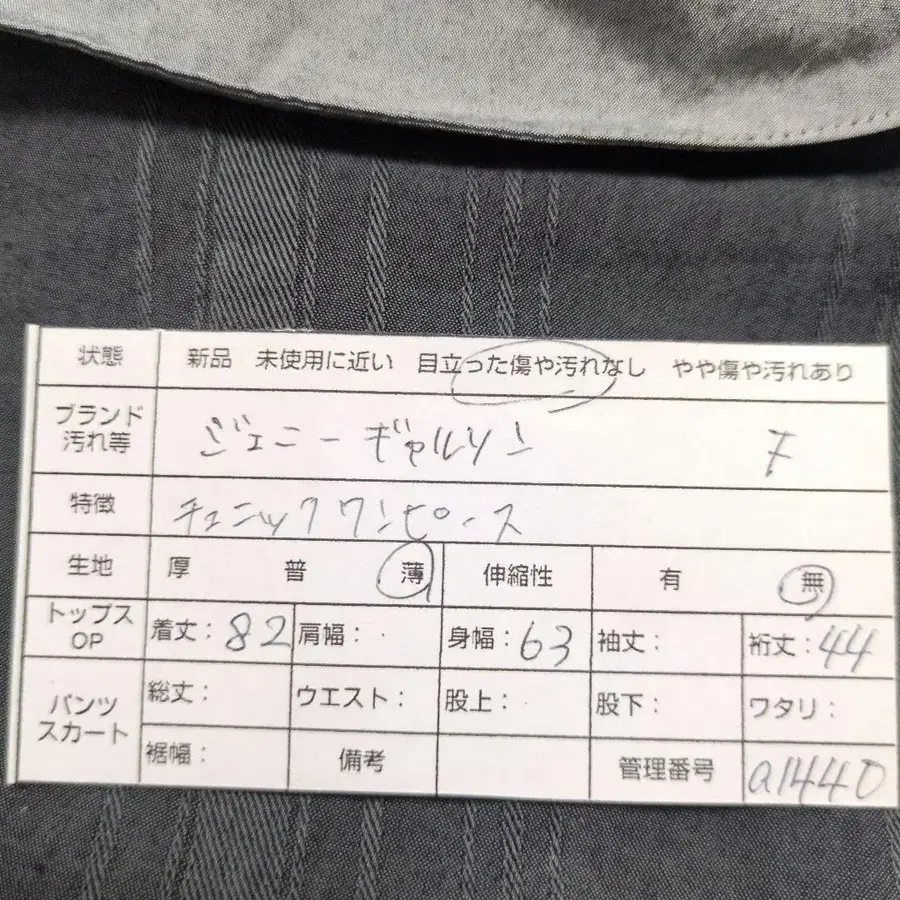 状態 新品 未使用に近い 目立った傷や汚れなし やや傷や汚れあり
ブランド
汚れ等 ジェニーギャルソン F
特徴 チェニックワンピース
生地 厚 普 薄 伸縮性 有 無
トップス
OP 着丈：82 肩幅： 身幅：63 袖丈： 裄丈：44
パンツ
スカート 総丈： ウエスト： 股上： 股下： ワタリ：
裾幅： 備考 管理番号 a1440